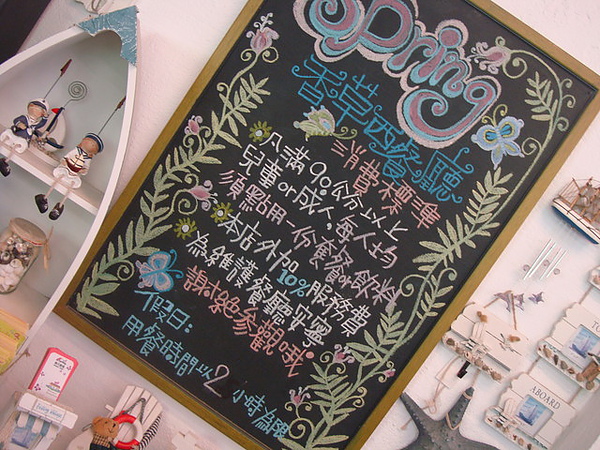 Spring
香草西餐廳
消費標準
凡滿90公分以上
兒童or成人,每人均
須點用一份套餐or飲料
本店外加10%服務費
為維護餐廳安寧
謝絕參觀哦。
假日:
用餐時間以2小時為限
ABOARD